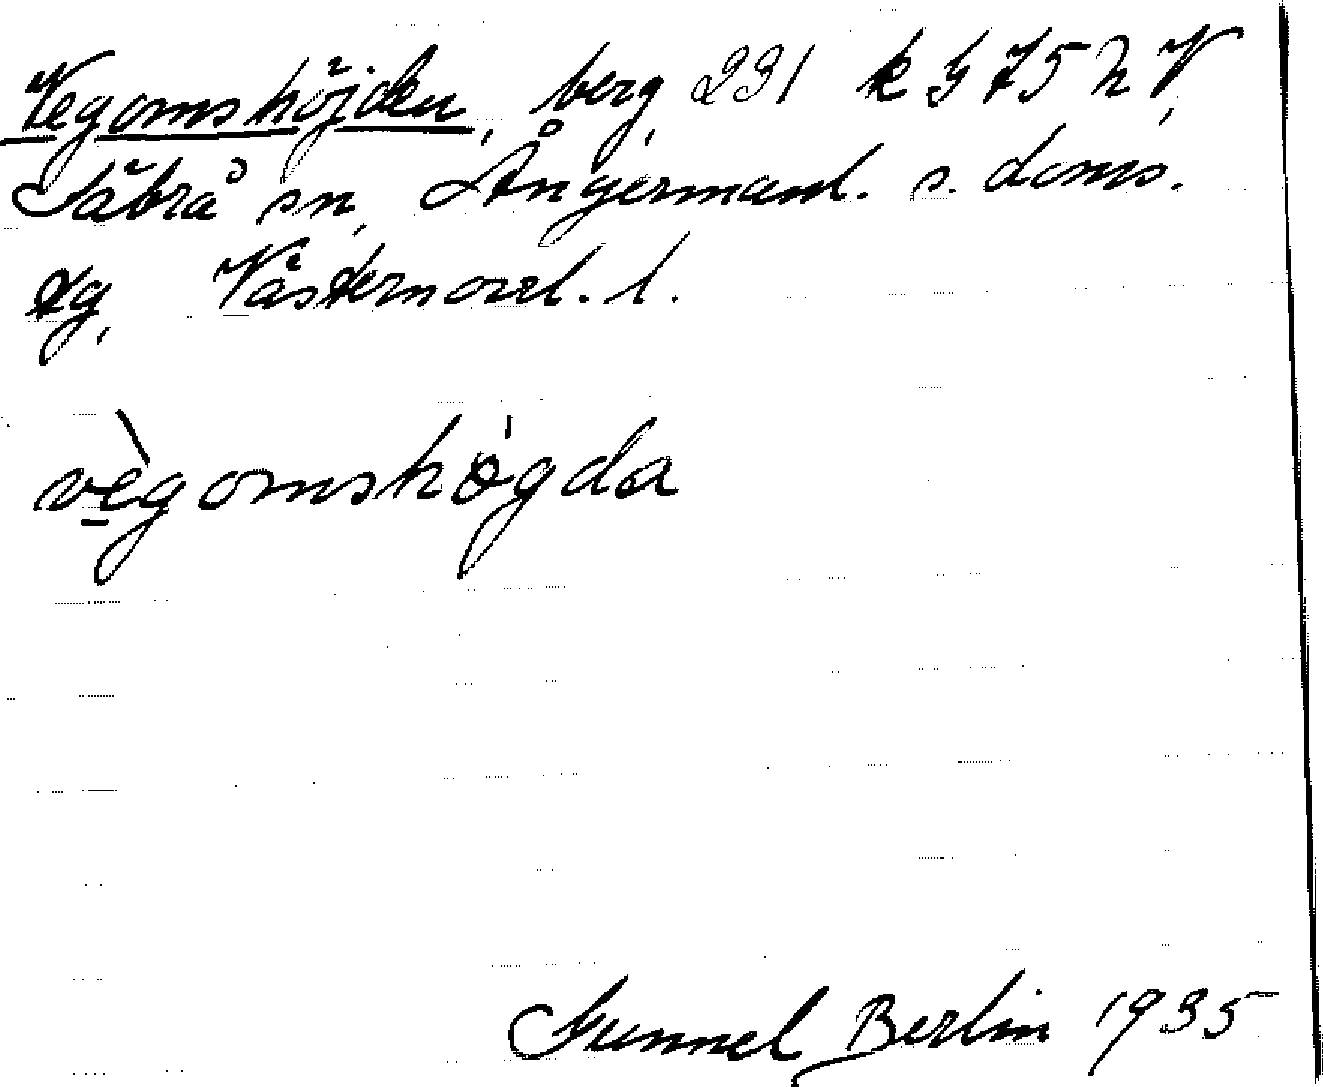 Vegomshöjden, berg, 231 k G 75 h V,
Säbrå sn, Ångermanl. s. doms.
tg, Västernorrl. l.
vègomshögda
Gunnel Berlin 1935